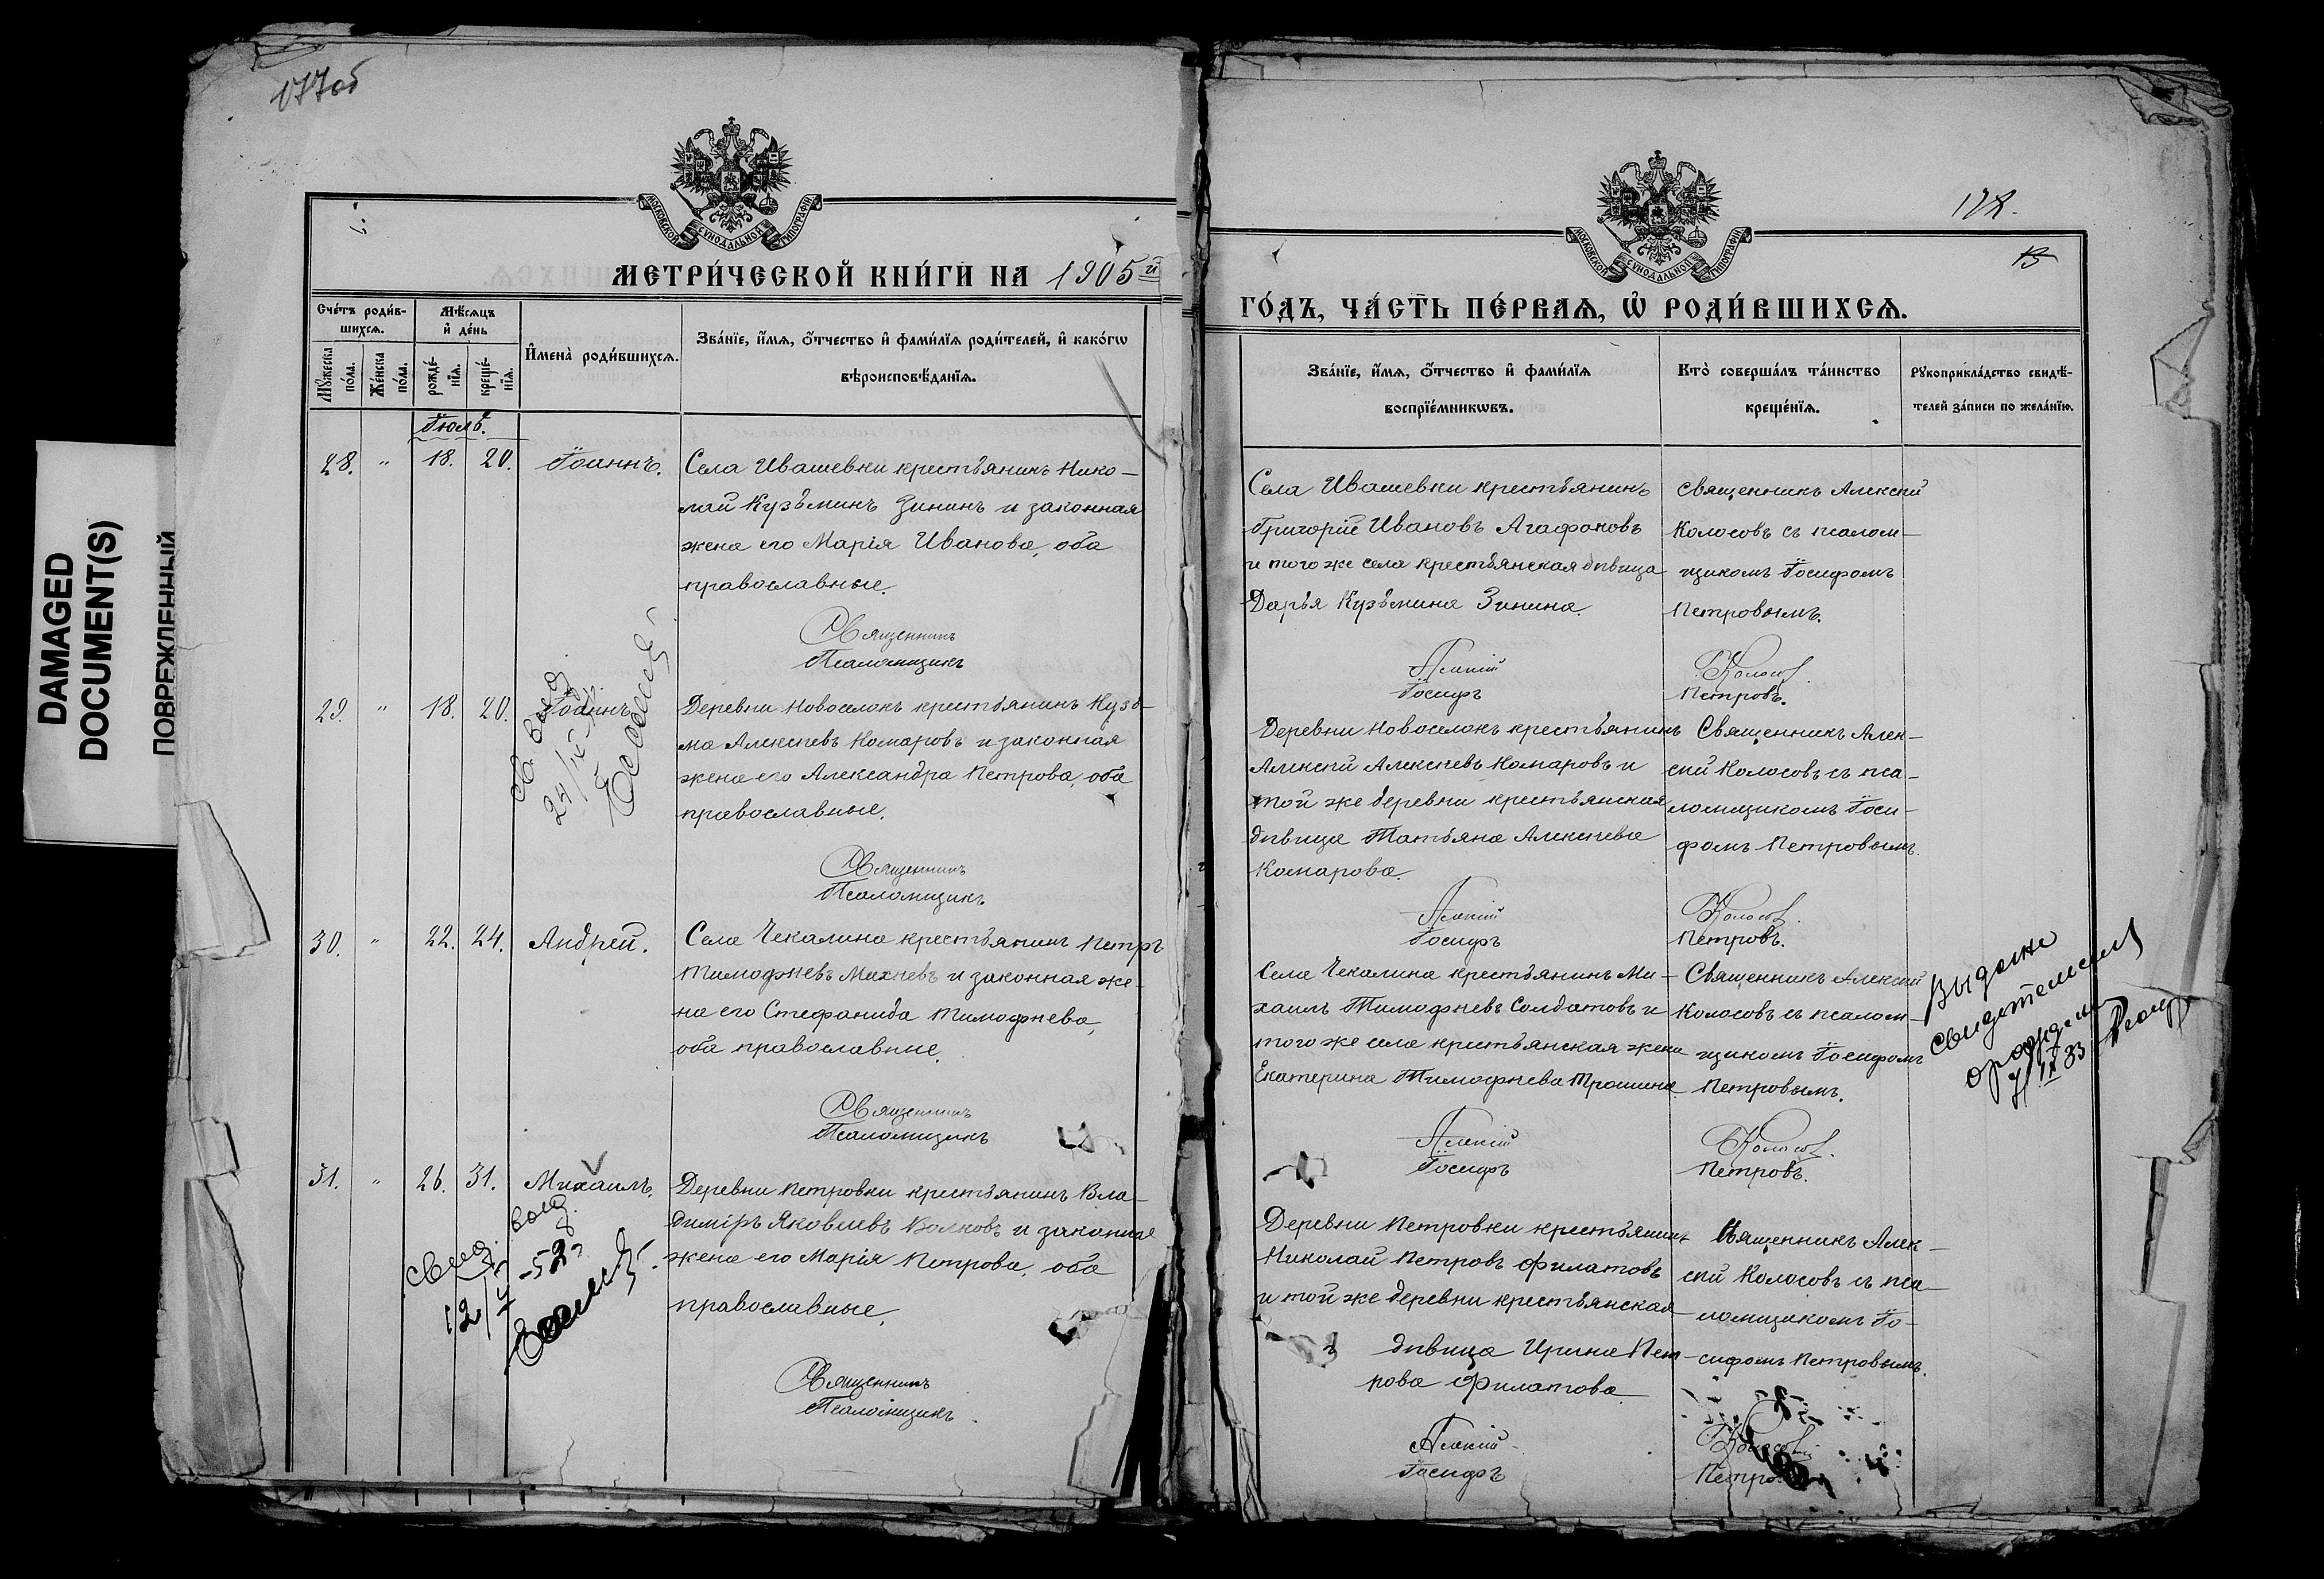 177об
МОСКОВСКОЙ СУНОДАЛЬНОЙ ТИПОГРАФІИ
МЕТРИ́ЧЕСКОЙ КНИ́ГИ НА 1905й
Сче́тъ роди́в-
шихсѧ.
Мѣ́сѧцъ
и҆ де́нь
И҆мена̀ роди́вшихсѧ.
Зва́нїе, и҆́мѧ, ѻ҆́тчество и҆ фами́лїѧ роди́телей, и҆ како́гѡ
вѣроисповѣ́данїѧ.
Мꙋ́жеска
по́ла.
Же́нска
по́ла.
рожде́-
нїѧ.
креще́-
нїѧ.
Іюль.
28. " 18. 20. Іоаннъ.
Села Ивашевки крестьянинъ Нико-
лай Кузьминъ Зининъ и законная
жена его Марія Иванова, оба
православные.
Священникъ
Псаломщикъ
29. " 18. 20. Іоаннъ.
Деревни Новоселокъ крестьянинъ Кузь-
ма Алексѣевъ Комаровъ и законная
жена его Александра Петрова, оба
православные.
Священникъ
Псаломщикъ
30. " 22. 24. Андрей.
Села Чекалина крестьянинъ Петръ
Тимофѣевъ Михѣевъ и законная же-
на его Стефанида Тимофѣева,
оба православные.
Священникъ
Псаломщикъ
31. " 26. 31. Михаилъ.
Деревни Петровки крестьянинъ Вла-
диміръ Яковлевъ Волковъ и законная
жена его Марія Петрова, оба
православные.
Священникъ
Псаломщикъ
МОСКОВСКОЙ СУНОДАЛЬНОЙ ТИПОГРАФІИ
178.
ГО́ДЪ, ЧА́СТЬ ПЕ́РВАѦ, Ѡ҆ РОДИ́ВШИХСѦ.
Зва́нїе, и҆́мѧ, ѻ҆́тчество и҆ фами́лїѧ
воспрїе́мникѡвъ.
Кто̀ соверша́лъ та́инство
креще́нїѧ.
Рꙋкоприкла́дство свидѣ́-
телей за́писи по жела́нїю.
Села Ивашевки крестьянинъ
Григорій Ивановъ Агафоновъ
и того же села крестьянская дѣвица
Дарья Кузьмина Зинина.
священникъ Алексѣй
Колосовъ съ псалом-
щикомъ Іосифомъ
Петровымъ.
Алексій Колосов.
Іосифъ Петровъ.
Деревни Новоселокъ крестьянинъ
Алексѣй Алексѣевъ Комаровъ и
той же деревни крестьянская
дѣвица Татьяна Алексѣева
Комарова.
Священникъ Алек-
сѣй Колосовъ съ пса-
ломщикомъ Іоси-
фомъ Петровымъ.
Алексій Колосов.
Іосифъ Петровъ.
Села Чекалина крестьянинъ Ми-
хаилъ Тимофѣевъ Солдатовъ и
того же села крестьянская жена
Екатерина Тимофѣева Трошина
Священникъ Алексѣй
Колосовъ съ псалом-
щикомъ Іосифомъ
Петровымъ.
Выдано
Алексій Колосов.
Іосифъ Петровъ.
Деревни Петровки крестьянинъ
Николай Петровъ Филатовъ
и той же деревни крестьянская
дѣвица Ирина Пет-
рова Филатова
Священникъ Алек-
сѣй Колосовъ съ пса-
ломщикомъ Іо-
сифомъ Петровымъ.
Алексій
Іосифъ
DAMAGED
DOCUMENT(S)
ПОВРЕЖДЕННЫЙ